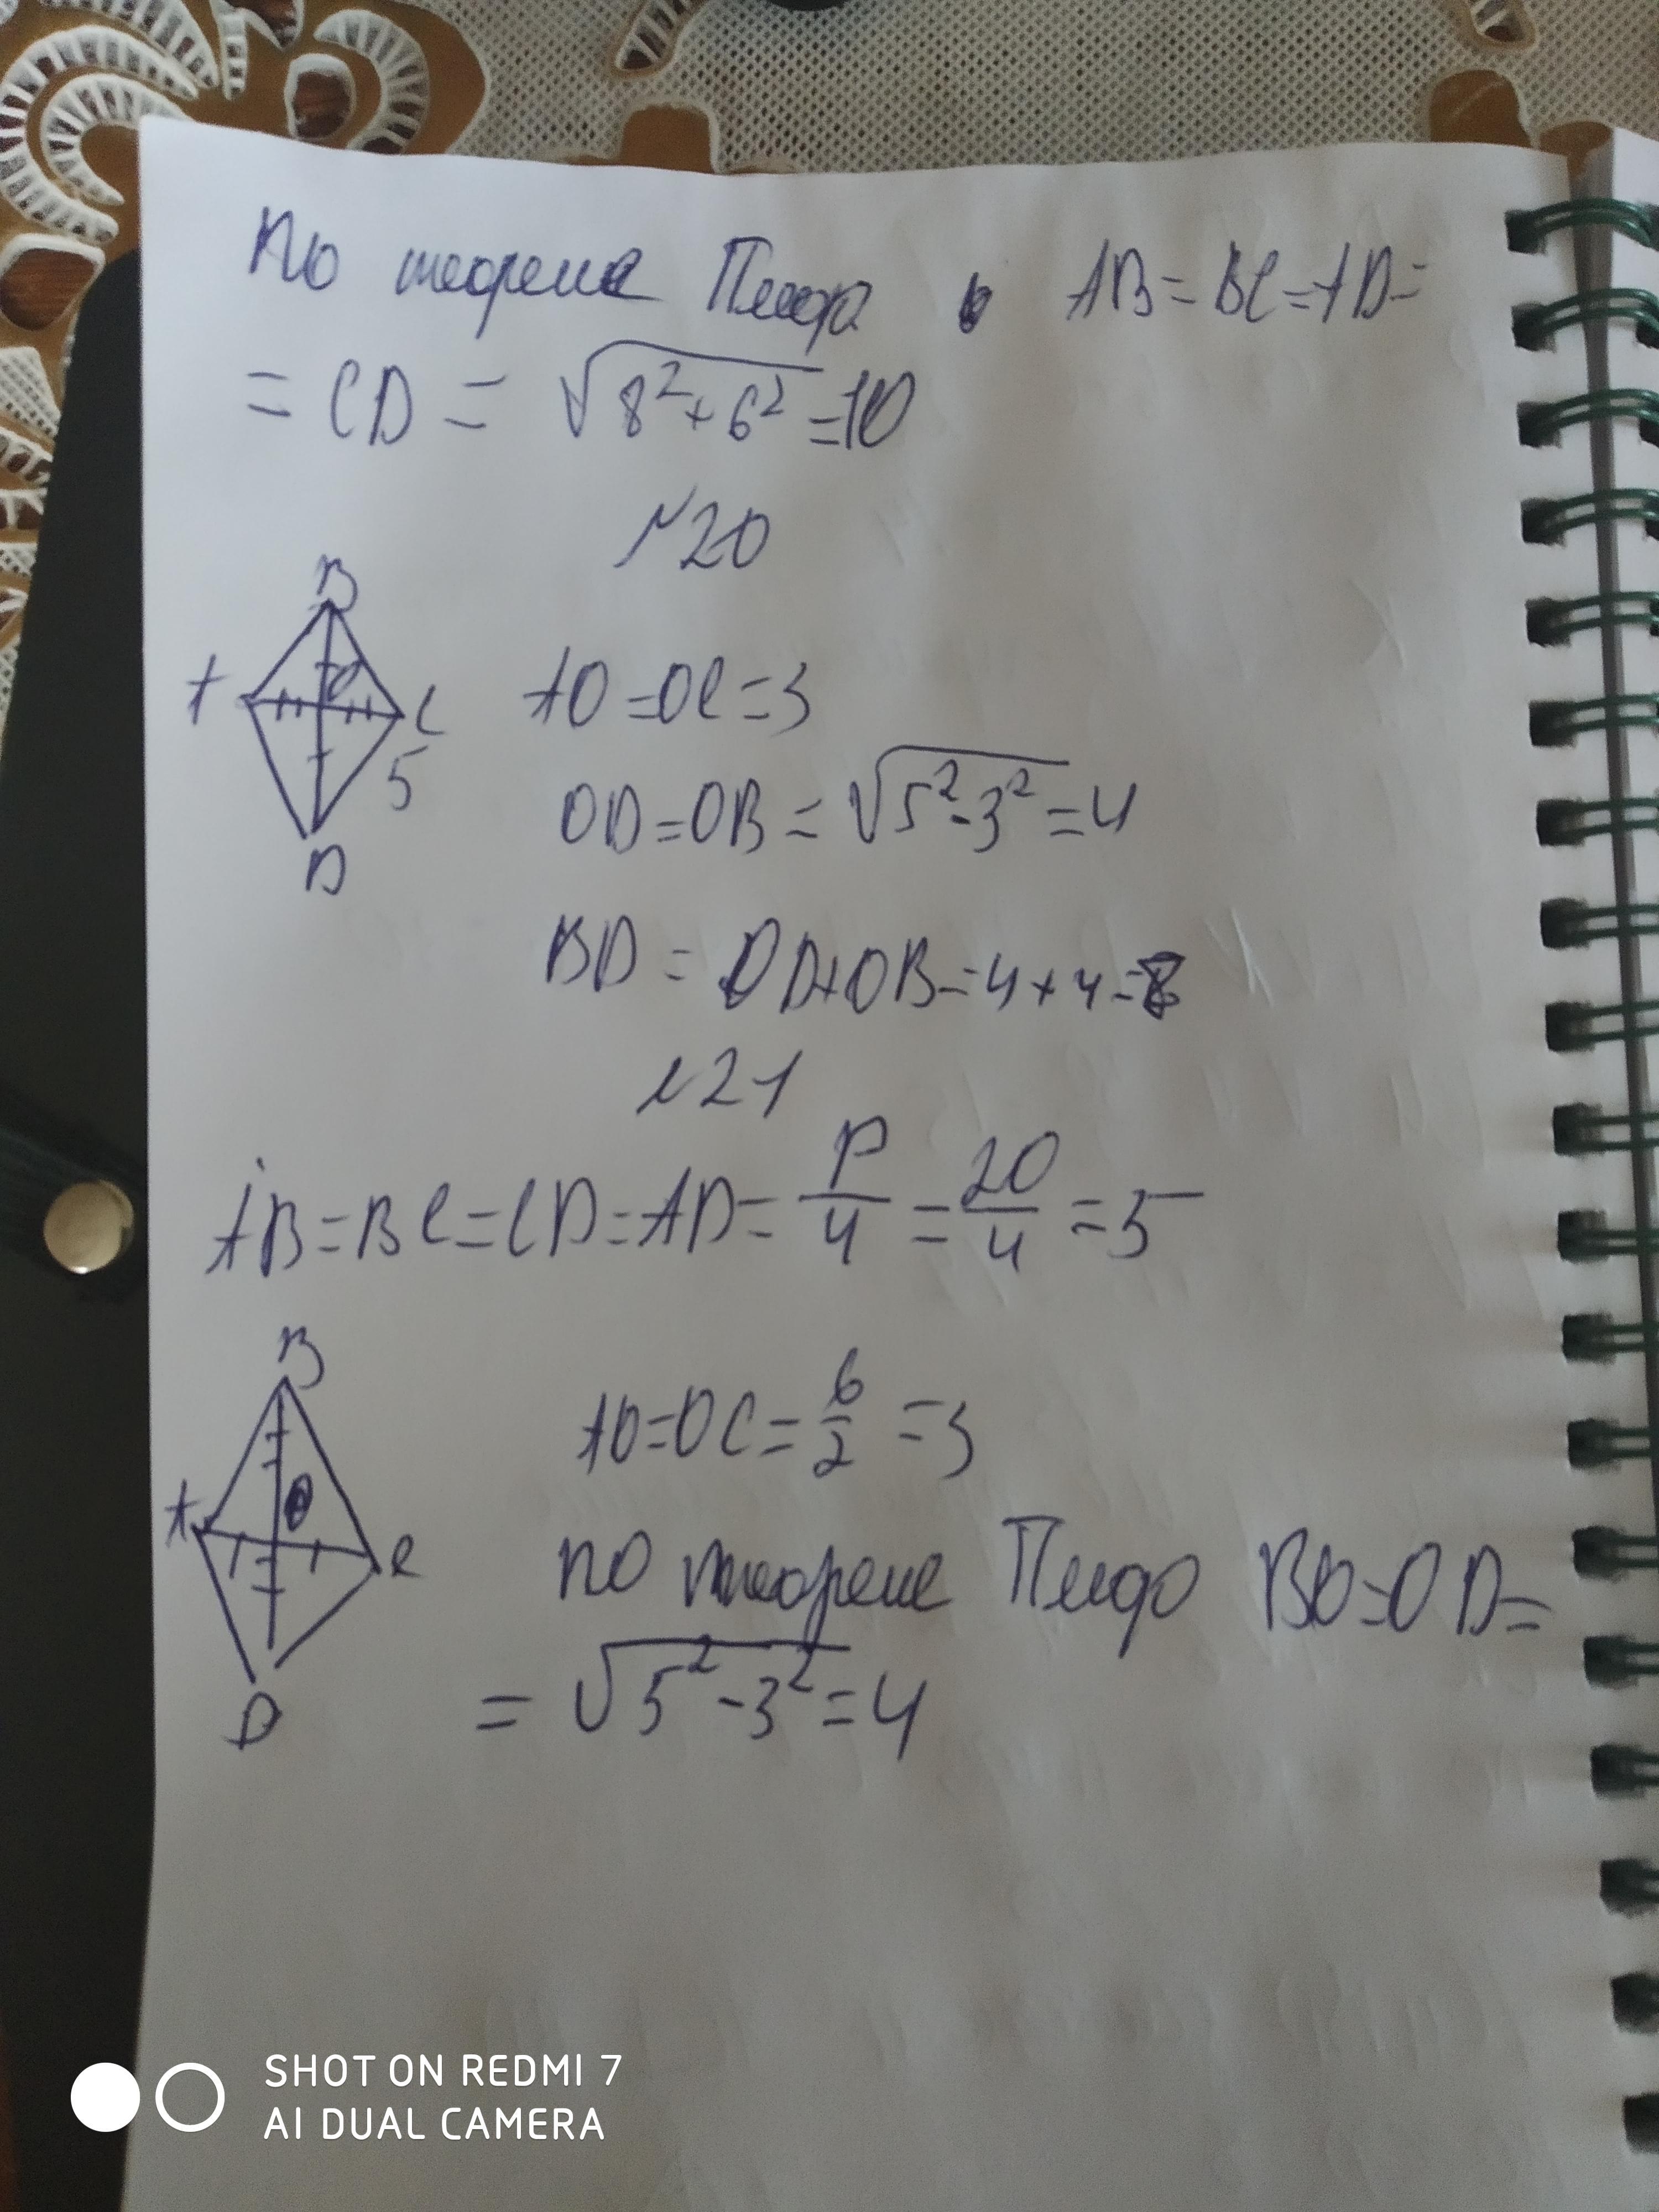 По теореме Пифа AB=BC=AD=
= CD = √8²+6² =10
№20
B
A O C AO=OC=3
5 OD=OB= √5²-3² =4
D
BD = OD+OB=4+4=8
№21
AB=BC=CD=AD= P/4 = 20/4 =5
B
AO=OC= 6/2 =3
A O C по теореме Пифо BO=OD=
D = √5²-3² =4
SHOT ON REDMI 7
AI DUAL CAMERA